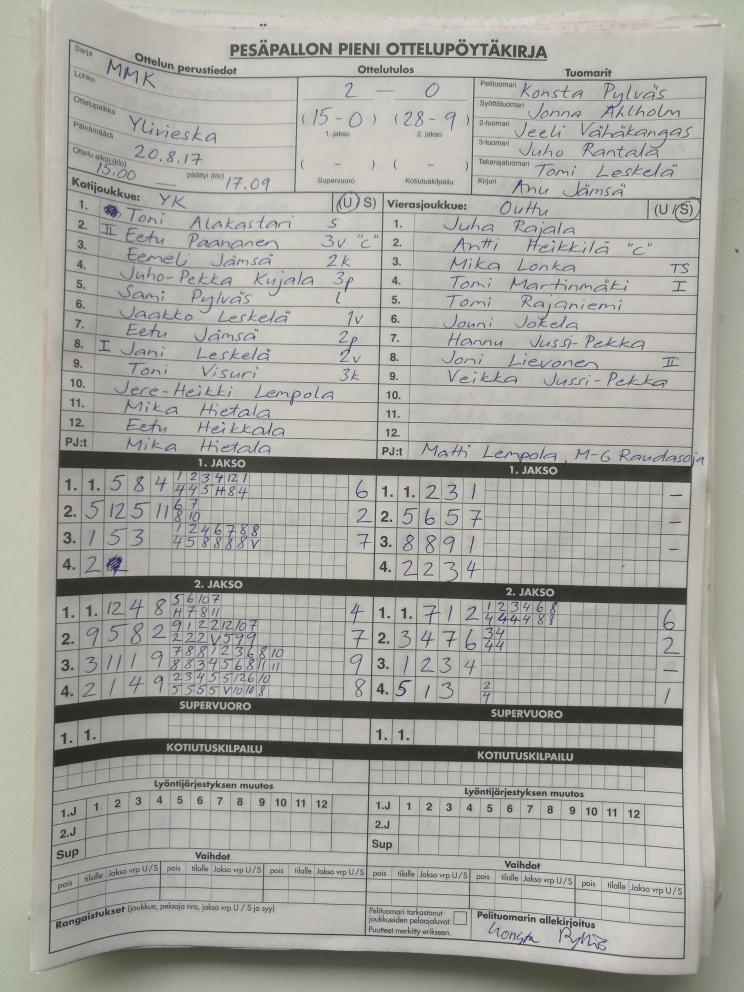 PESÄPALLON PIENI OTTELUPÖYTÄKIRJA
Ottelun perustiedot
Sarja MMK
Lohko
Ottelupaikka Ylivieska
Päivämäärä 20.8.17
Ottelu alkoi (klo) 15.00 — päättyi (klo) 17.09
Ottelutulos
2 — 0
(15-0) (28-9)
1. jakso 2. jakso
( - ) ( - )
Supervuoro Kotiutuskilpailu
Tuomarit
Pelituomari Konsta Pylväs
Syöttötuomari Jonna Ahlholm
2-tuomari Jeeli Vähäkangas
3-tuomari Juho Rantala
Takarajatuomari Tomi Leskelä
Kirjuri Anu Jämsä
Kotijoukkue: YK (U S)
1. Toni Alakastari S
2. II Eetu Paananen 3v "C"
3. Eemeli Jämsä 2k
4. Juho-Pekka Kujala 3p
5. Sami Pylväs L
6. Jaakko Leskelä 1v
7. Eetu Jämsä 2p
8. I Jani Leskelä 2v
9. Toni Visuri 3k
10. Jere-Heikki Lempola
11. Mika Hietala
12. Eetu Heikkala
PJ:t Mika Hietala
Vierasjoukkue: Outtu (U / S)
1. Juha Rajala
2. Antti Heikkilä "C"
3. Mika Lonka TS
4. Tomi Martinmäki I
5. Tomi Rajaniemi
6. Jouni Jokela
7. Hannu Jussi-Pekka
8. Joni Lievonen II
9. Veikka Jussi-Pekka
10.
11.
12.
PJ:t Matti Lempola, M-G Raudasoja
1. JAKSO
1. 1. 5 8 4 6
2. 5 12 5 11 6 7 8 10 2
3. 1 5 3 7
4. 2
1. JAKSO
1. 1. 2 3 1 –
2. 5 6 5 7 –
3. 8 8 9 1 –
4. 2 2 3 4
2. JAKSO
1. 1. 12 4 8 4
2. 9 5 8 2 7
3. 3 11 1 9 9
4. 2 1 4 9 8
2. JAKSO
1. 1. 7 1 2 1 2 3 4 6 8 4 4 4 4 8 8 6
2. 3 4 7 6 3 4 4 4 2
3. 1 2 3 4 –
4. 5 1 3 2 4 1
SUPERVUORO
1. 1.
SUPERVUORO
1. 1.
KOTIUTUSKILPAILU
KOTIUTUSKILPAILU
Lyöntijärjestyksen muutos
1.J 1 2 3 4 5 6 7 8 9 10 11 12
2.J
Sup
Lyöntijärjestyksen muutos
1.J 1 2 3 4 5 6 7 8 9 10 11 12
2.J
Sup
Vaihdot
pois tilalle Jakso vrp U/S pois tilalle Jakso vrp U/S pois tilalle Jakso vrp U/S
Vaihdot
pois tilalle Jakso vrp U/S pois tilalle Jakso vrp U/S pois tilalle Jakso vrp U/S
Rangaistukset (joukkue, pelaaja nro, jakso vrp U / S ja syy)
Pelituomari tarkastanut
joukkueiden pelaajaluvat:
Puutteet merkitty erikseen.
Pelituomarin allekirjoitus
Konsta Pylväs